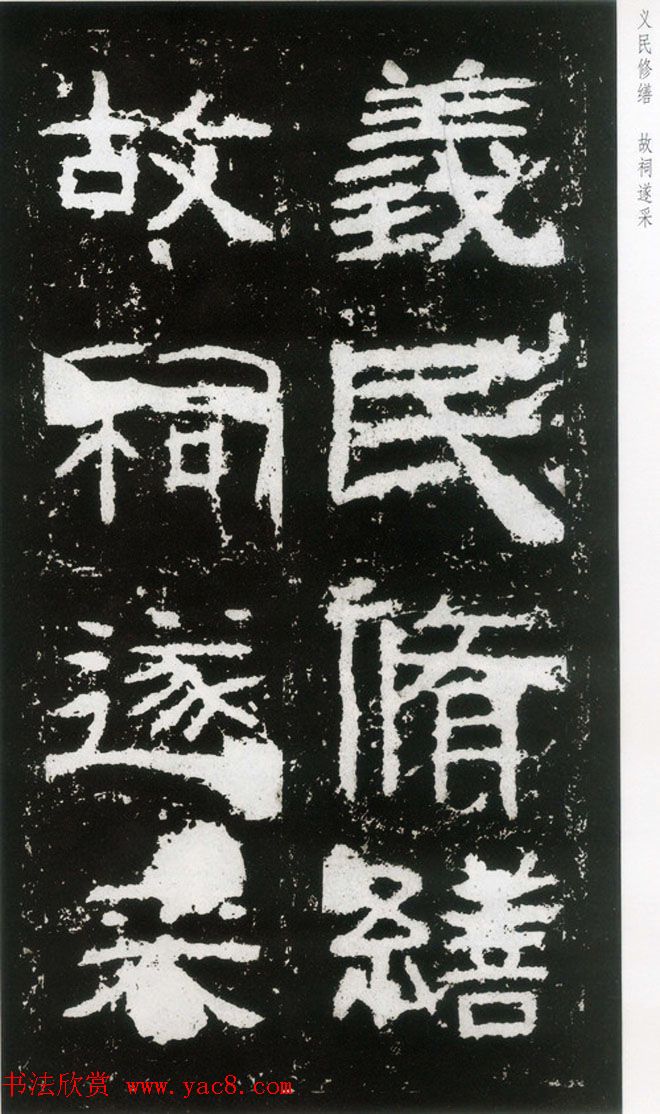 義民脩繕
故祠遂采
义民修缮　故祠遂采
书法欣赏 www.yac8.com